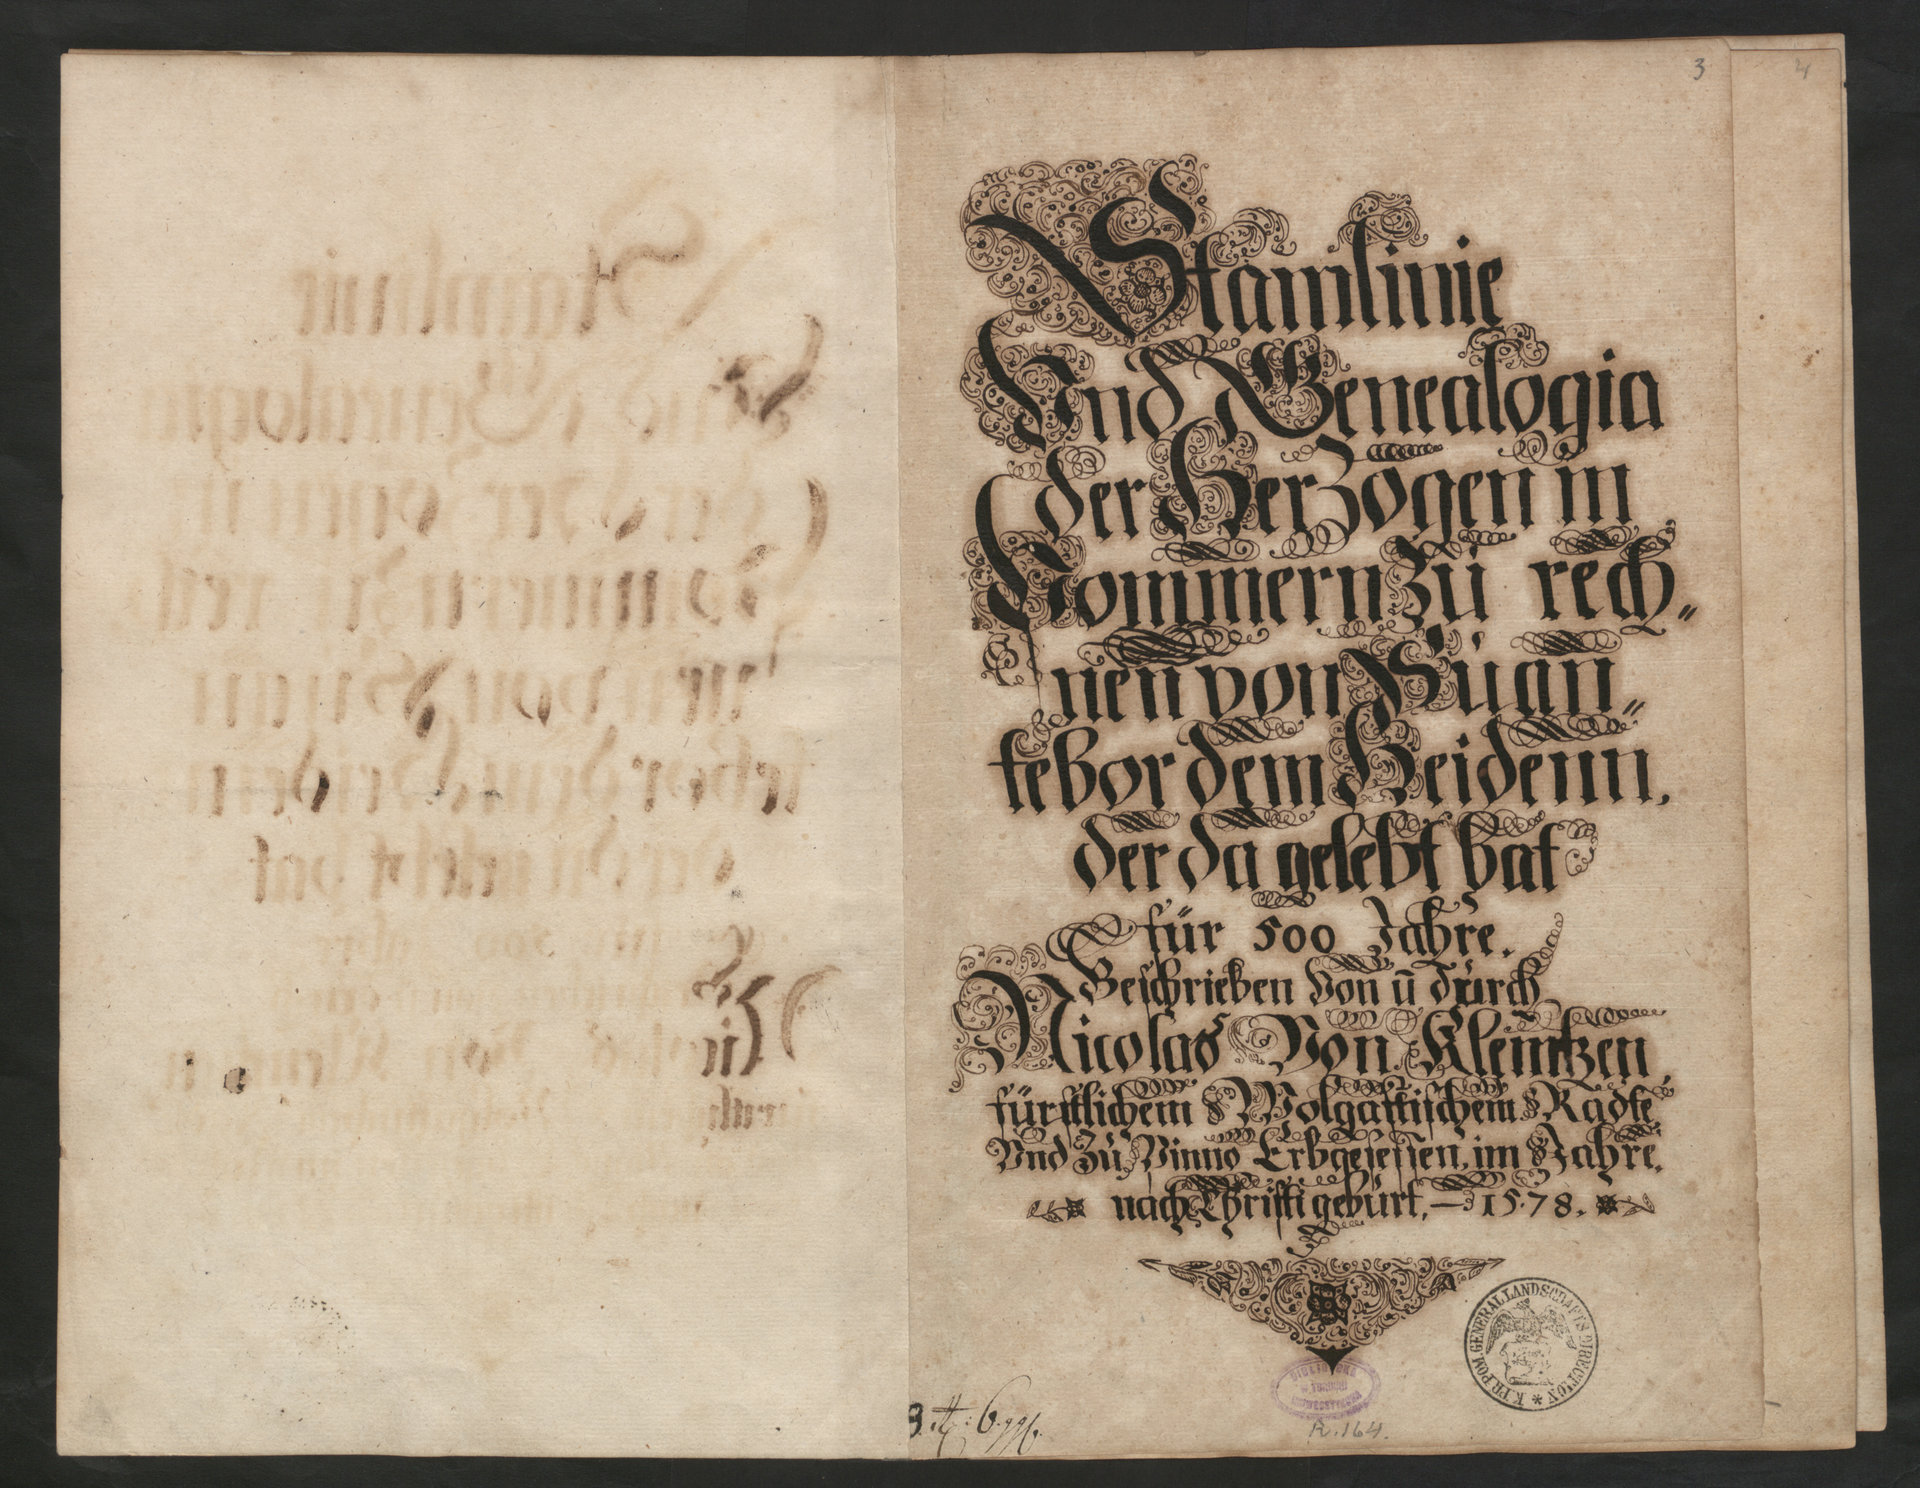 3
4
Stamlinie
Vnd Genealogia
der Herzogen in
Pommern zu rech„
nen von Suan„
tebor dem Heidenn,
der da gelebt hat
für 500 Jahre.
Beschrieben Von u̅ durch
Nicolas Von Klemtzen
fürstlichem Wolgastischem Radte
Vnd Zu Vinno Erbgesessen, im Jahre
nach Christi geburt, 1578.
K.PR.POM.GENERAL LANDSCHAFTS DIRECTION
BIBLIOTEKA
W TORUNIU
UNIWERSYTECKA
R.164.